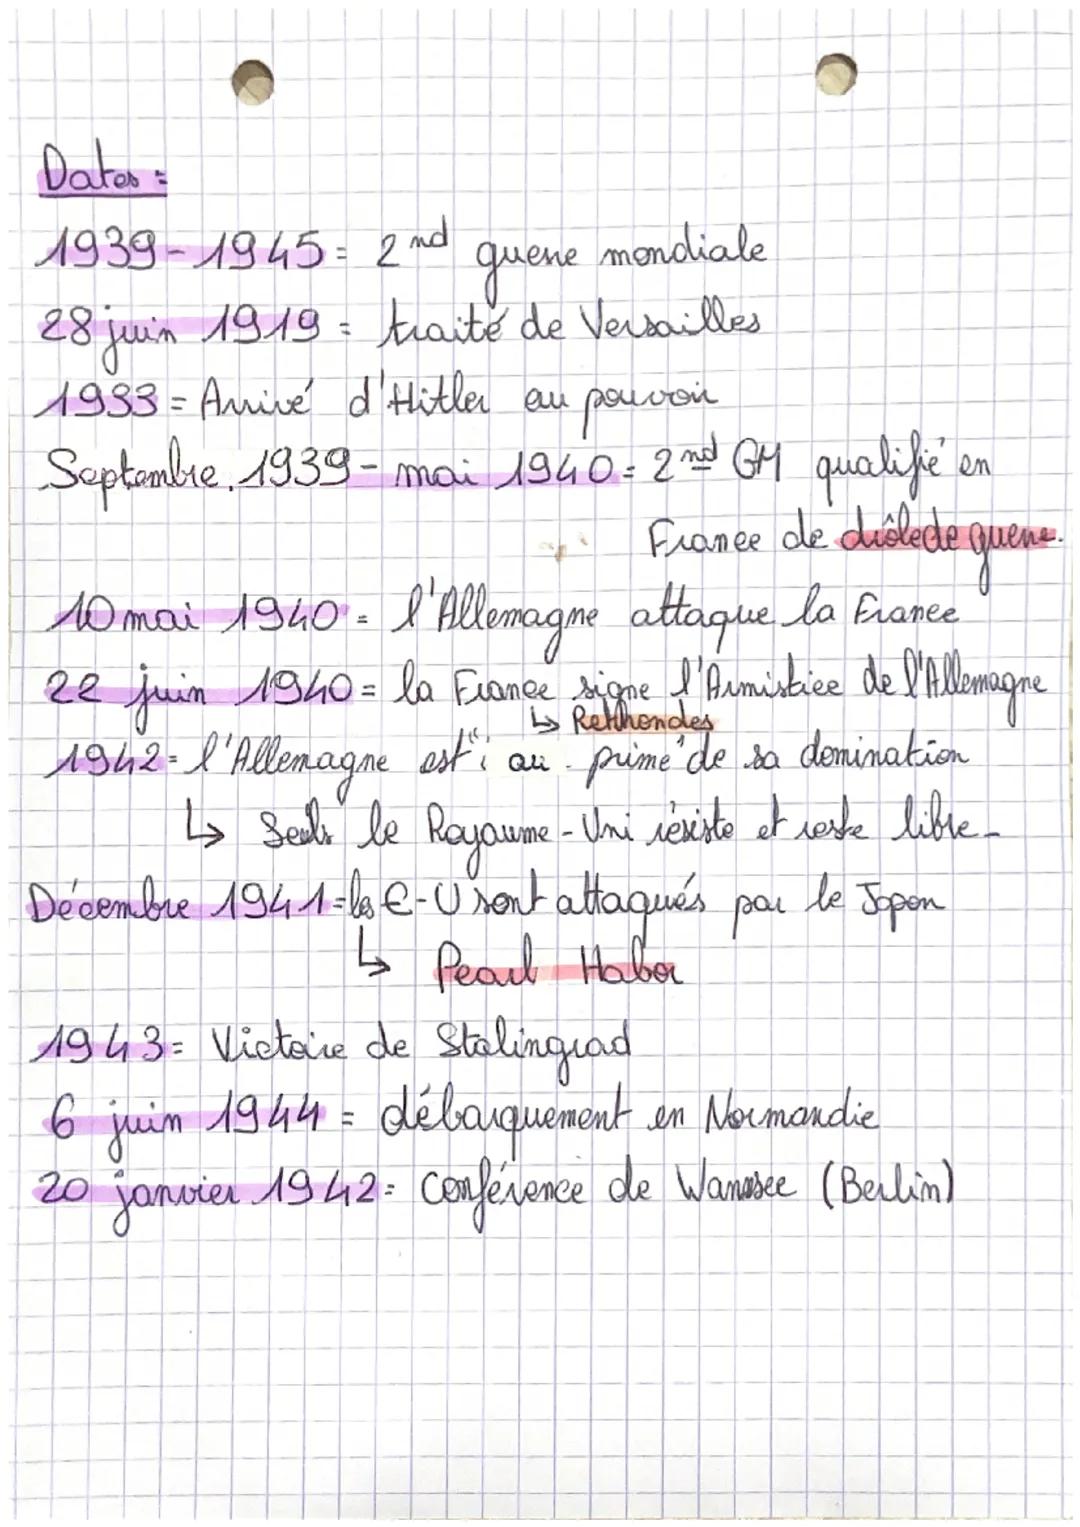 Dates :
1939-1945 = 2nd guerre mondiale
28 juin 1919 = traité de Versailles
1933 = Arrivé d'Hitler au pouvoir
Septembre 1939 - mai 1940 = 2nd GM qualifié en
France de drôle de guerre.
10 mai 1940 = l'Allemagne attaque la France
22 juin 1940 = la France signe l'Armistice de l'Allemagne
↳ Rethondes
1942 = l'Allemagne est au de sa domination
↳ Seuls le Royaume-Uni résiste et reste libre
Décembre 1941 = les E-U sont attaqués par le Japon
↳ Pearl Habor
1943 = Victoire de Stalingrad
6 juin 1944 = débarquement en Normandie
20 janvier 1942 = Conférence de Wannsee (Berlin)